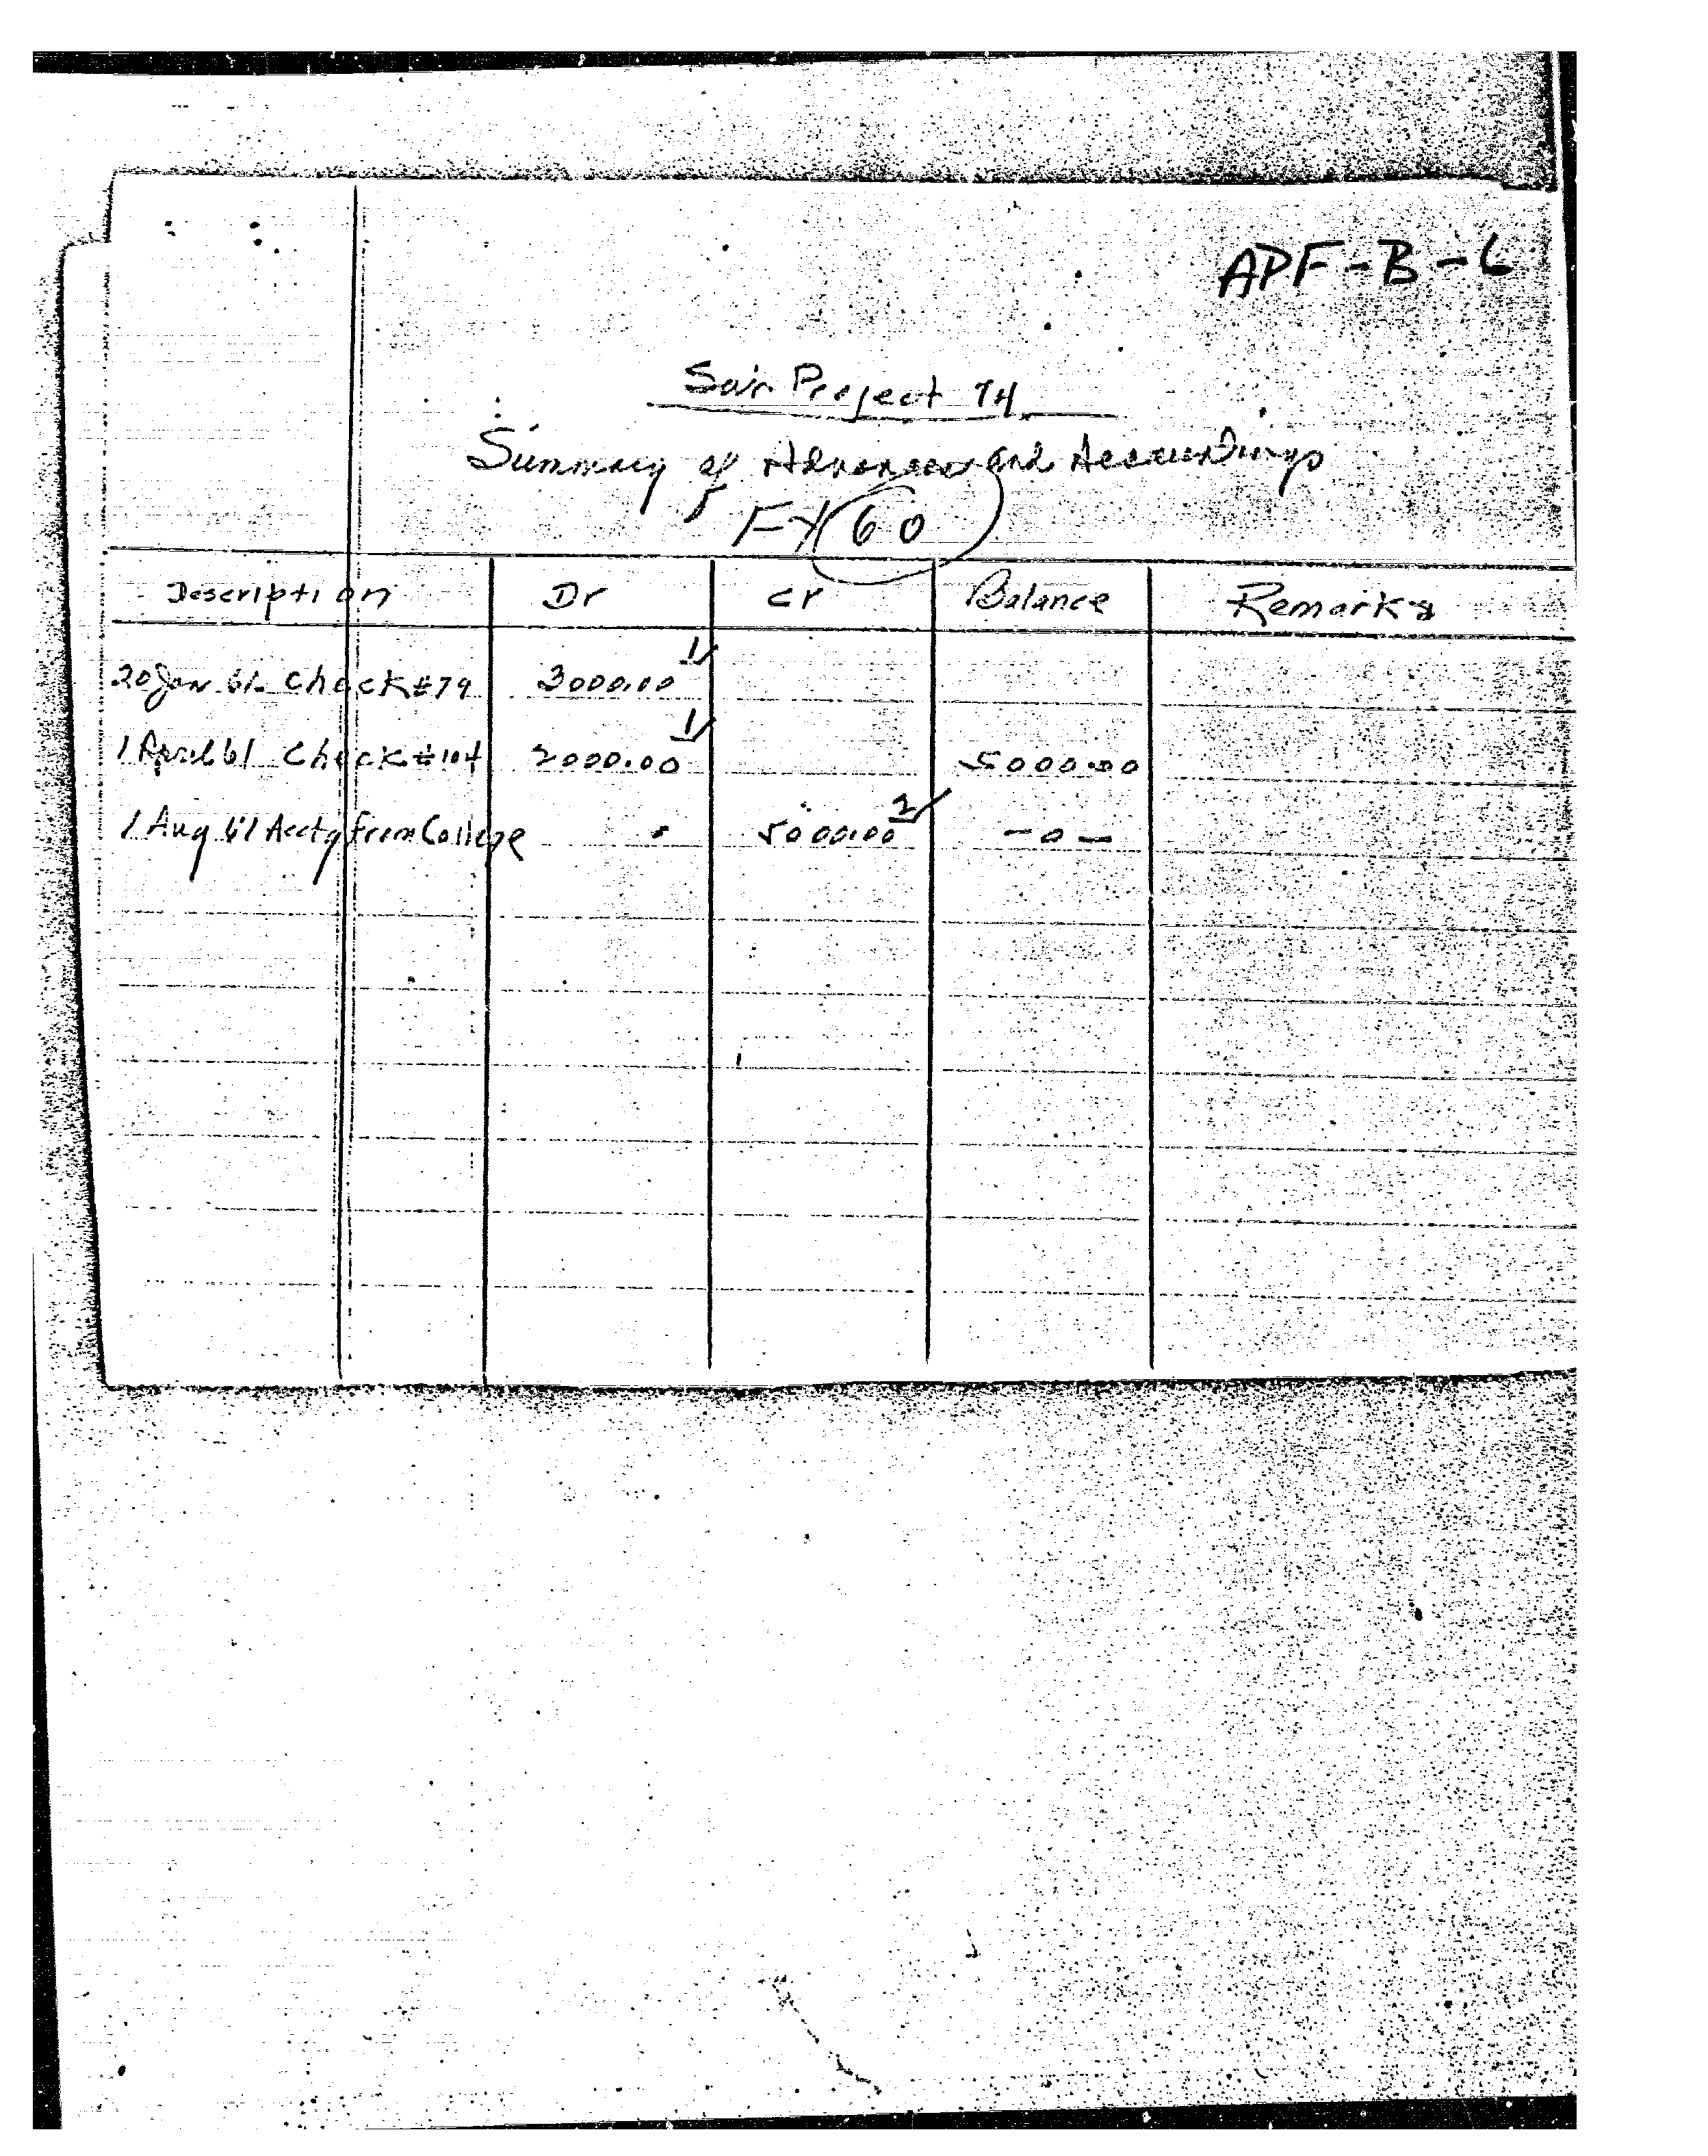 APF-B-6
Sub Project 74
Summary of Advances and Accountings
FY 60
Description Dr Cr Balance Remarks
20 Jan 61 Check #79 3000.00 1/
1 April 61 Check #104 2000.00 1/ 5000.00
1 Aug 61 Acctg from College - 5000.00 2/ -0-